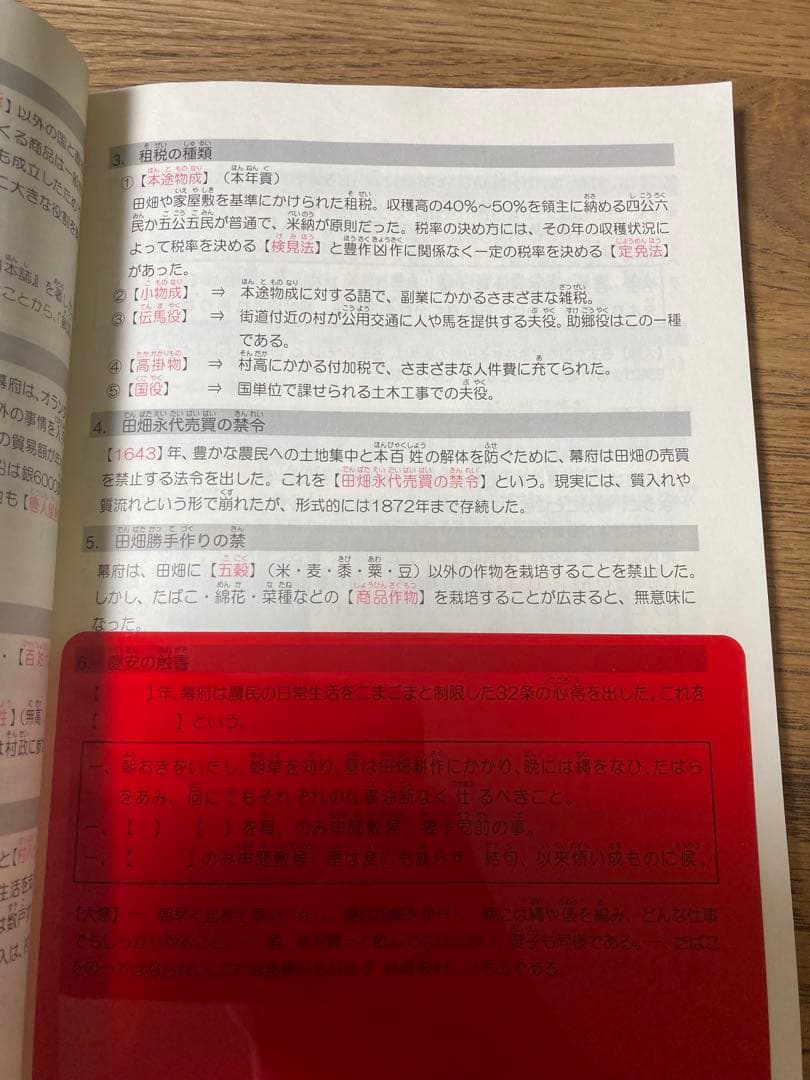 】以外の国と
くる商品は一
も成立したため
に大きな役割を
日本誌』を著し
ことから、「
幕府は、オラン
外の事情を
の貿易額が
船は銀6000
も【唐人屋
・【百姓
】(無高
は村政に
と【
生活を
は数戸
入は、
3. 租税の種類
①【本途物成】(本年貢)
田畑や家屋敷を基準にかけられた租税。収穫高の40%〜50%を領主に納める四公六
民か五公五民が普通で、米納が原則だった。税率の決め方には、その年の収穫状況に
よって税率を決める【検見法】と豊作凶作に関係なく一定の税率を決める【定免法】
があった。
②【小物成】 ⇒ 本途物成に対する語で、副業にかかるさまざまな雑税。
③【伝馬役】 ⇒ 街道付近の村が公用交通に人や馬を提供する夫役。助郷役はこの一種
である。
④【高掛物】 ⇒ 村高にかかる付加税で、さまざまな人件費に充てられた。
⑤【国役】 ⇒ 国単位で課せられる土木工事での夫役。
4. 田畑永代売買の禁令
【1643】年、豊かな農民への土地集中と本百姓の解体を防ぐために、幕府は田畑の売買
を禁止する法令を出した。これを【田畑永代売買の禁令】という。現実には、質入れや
質流れという形で崩れたが、形式的には1872年まで存続した。
5. 田畑勝手作りの禁
幕府は、田畑に【五穀】(米・麦・黍・粟・豆)以外の作物を栽培することを禁止した。
しかし、たばこ・綿花・菜種などの【商品作物】を栽培することが広まると、無意味に
なった。
6. 慶安の触書
【 】年、幕府は農民の日常生活をこまごまと制限した32条の心得を出した。これを
【 】という。
一、朝おきをいたし、朝草を刈り、昼は田畑耕作にかかり、晩には縄をなひ、たはら
をあみ、何にてもそれぞれの仕事油断なく仕るべきこと。
一、【 】・【 】を買、のみ申間敷候、妻子同前の事。
一、【 】のみ申間敷候、是は食にも成らず、結句、以来煩い成ものに候。
【大意】一、朝早く起きて草刈りを、昼は田畑を耕作し、晩には縄や俵を編み、どんな仕事
でもしっかりやること。一、酒、茶を買って飲んではならない。妻子も同様である。一、たばこ
を吸ってはならない。これは食事にもならず、